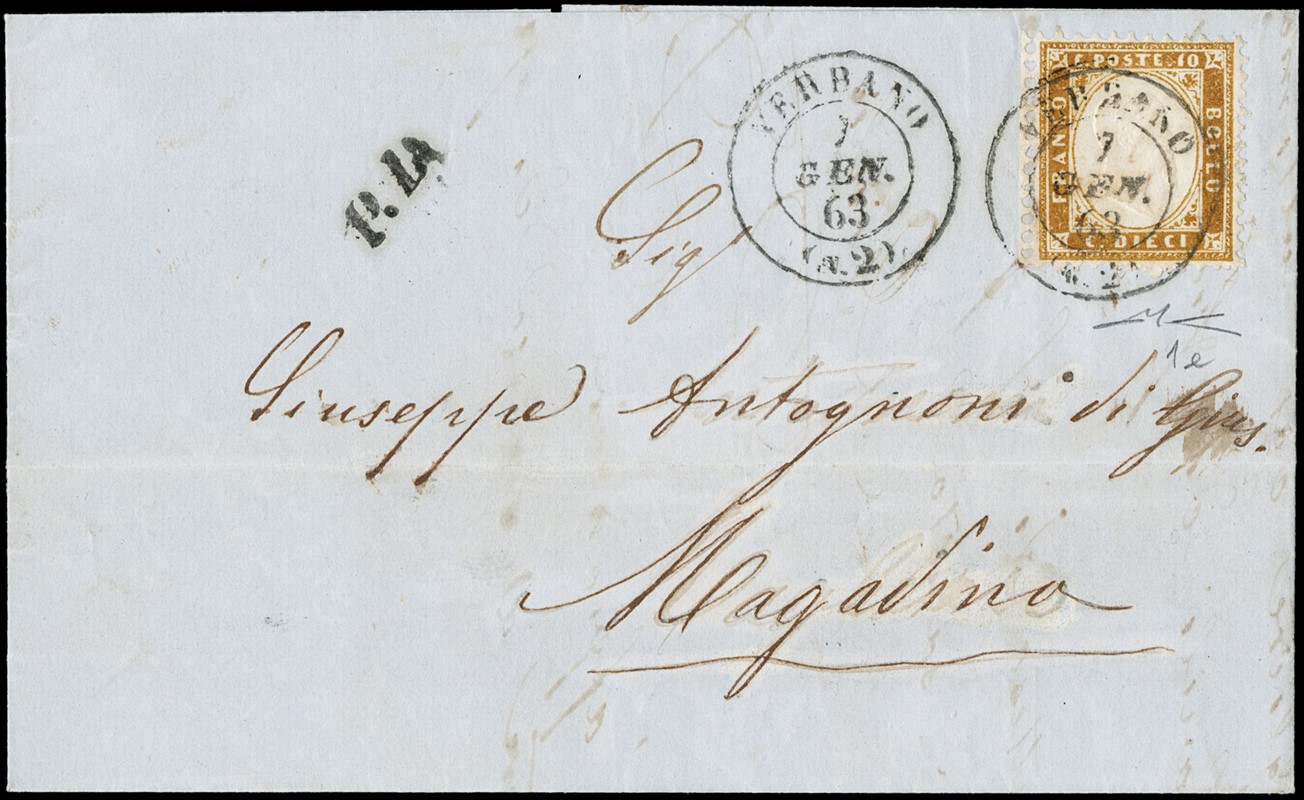 C. POSTE. 10
FRANCO
BOLLO
C. DIECI
VERBANO
7
GEN.
63
(N. 2)
VERBANO
7
GEN.
63
(N. 2)
P. D.
Sig
Giuseppe Antognoni di Gius.
Magadino
1 e